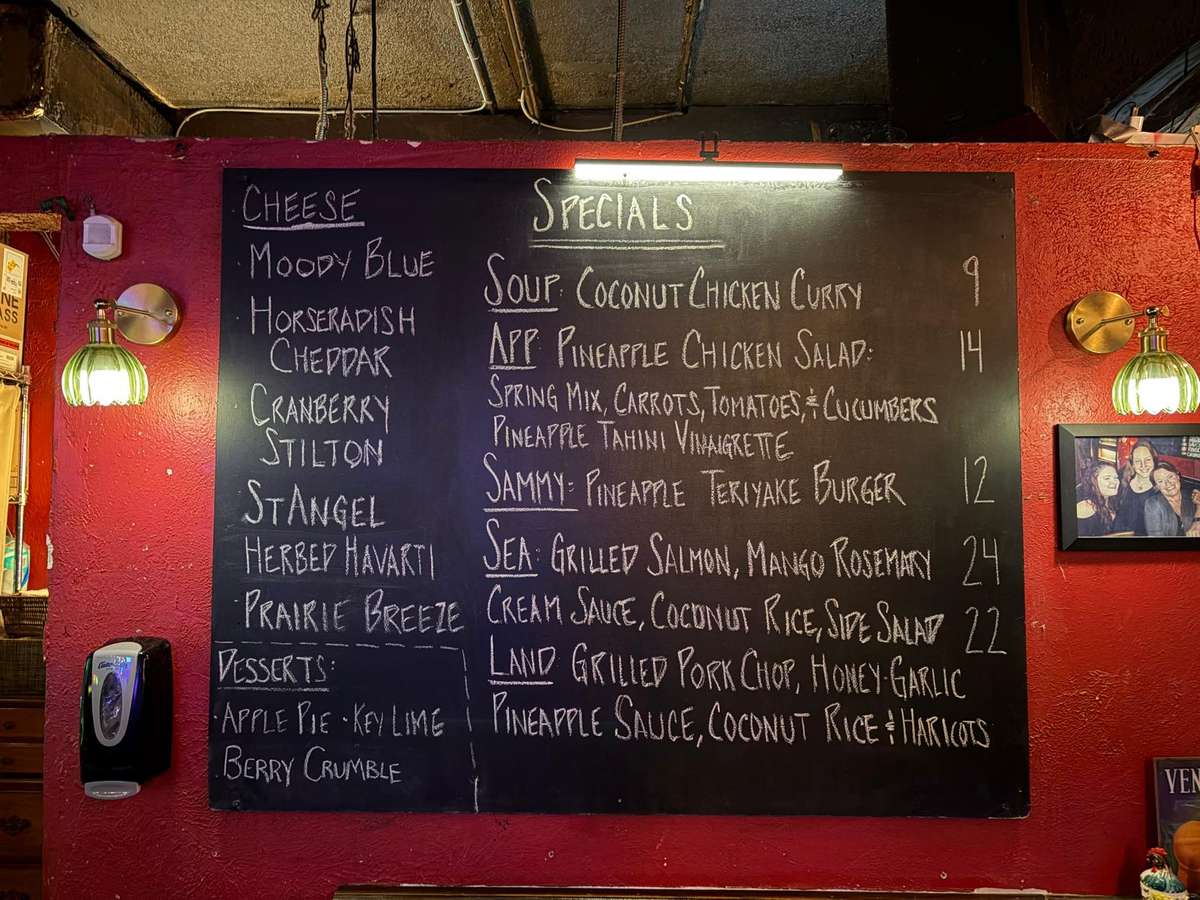 CHEESE
MOODY BLUE
HORSERADISH
CHEDDAR
CRANBERRY
STILTON
STANGEL
HERBED HAVARTI
PRAIRIE BREEZE
DESSERTS:
·APPLE PIE ·KEY LIME
BERRY CRUMBLE
SPECIALS
SOUP: COCONUT CHICKEN CURRY 9
APP: PINEAPPLE CHICKEN SALAD: 14
SPRING MIX, CARROTS, TOMATOES, & CUCUMBERS
PINEAPPLE TAHINI VINAIGRETTE
SAMMY: PINEAPPLE TERIYAKE BURGER 12
SEA: GRILLED SALMON, MANGO ROSEMARY 24
CREAM SAUCE, COCONUT RICE, SIDE SALAD
LAND GRILLED PORK CHOP, HONEY-GARLIC 22
PINEAPPLE SAUCE, COCONUT RICE & HARICOTS
VEN